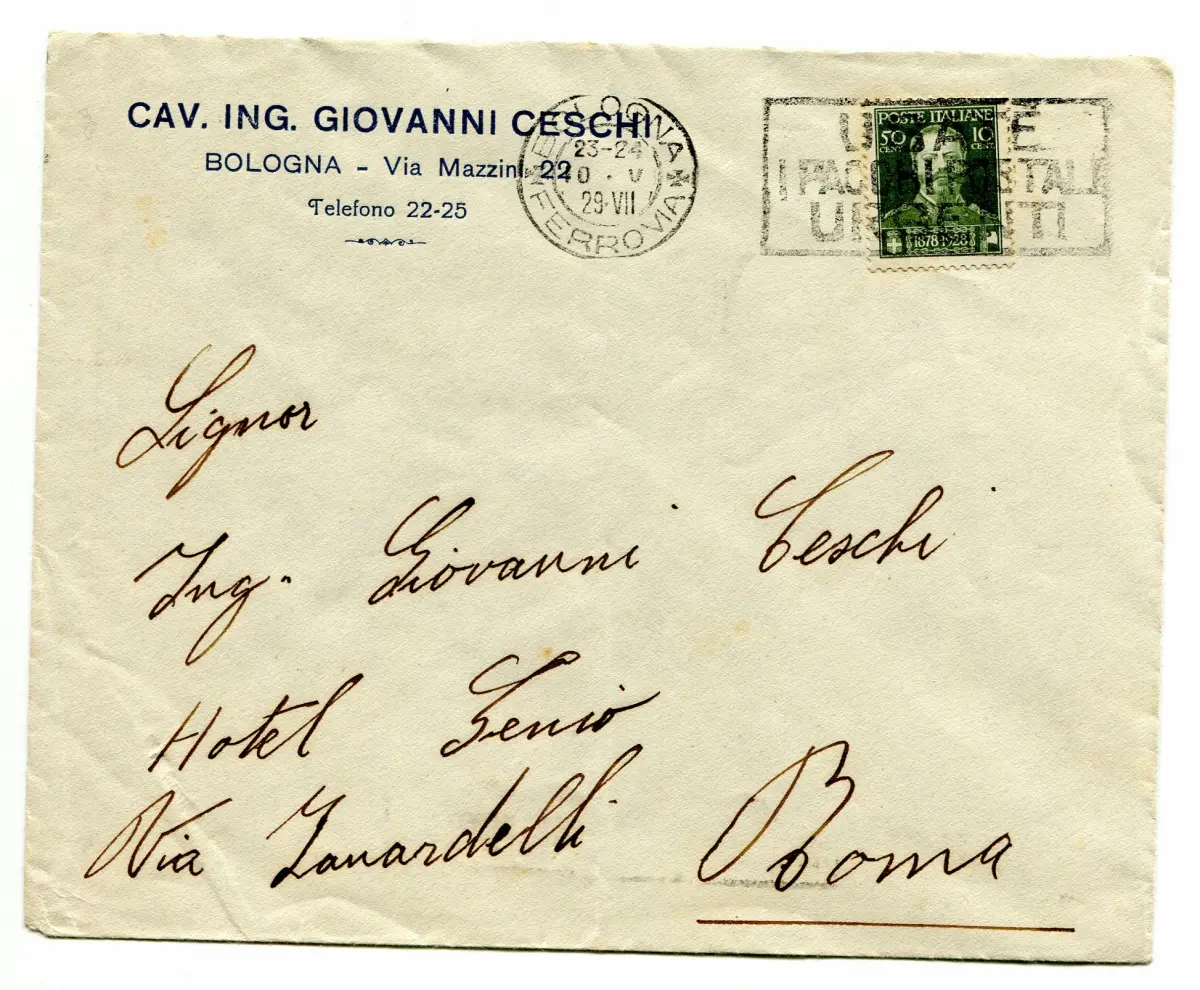 CAV. ING. GIOVANNI CESCHI
BOLOGNA - Via Mazzini 22
Telefono 22-25
BOLOGNA
23-24
10 · V
29·VII
FERROVIA
POSTE ITALIANE
50 CENT. 10 CENT.
I PACCHI POSTALI
URGENTI
1878·1928
Signor
Ing. Giovanni Ceschi
Hotel Genio
Via Zanardelli
Roma